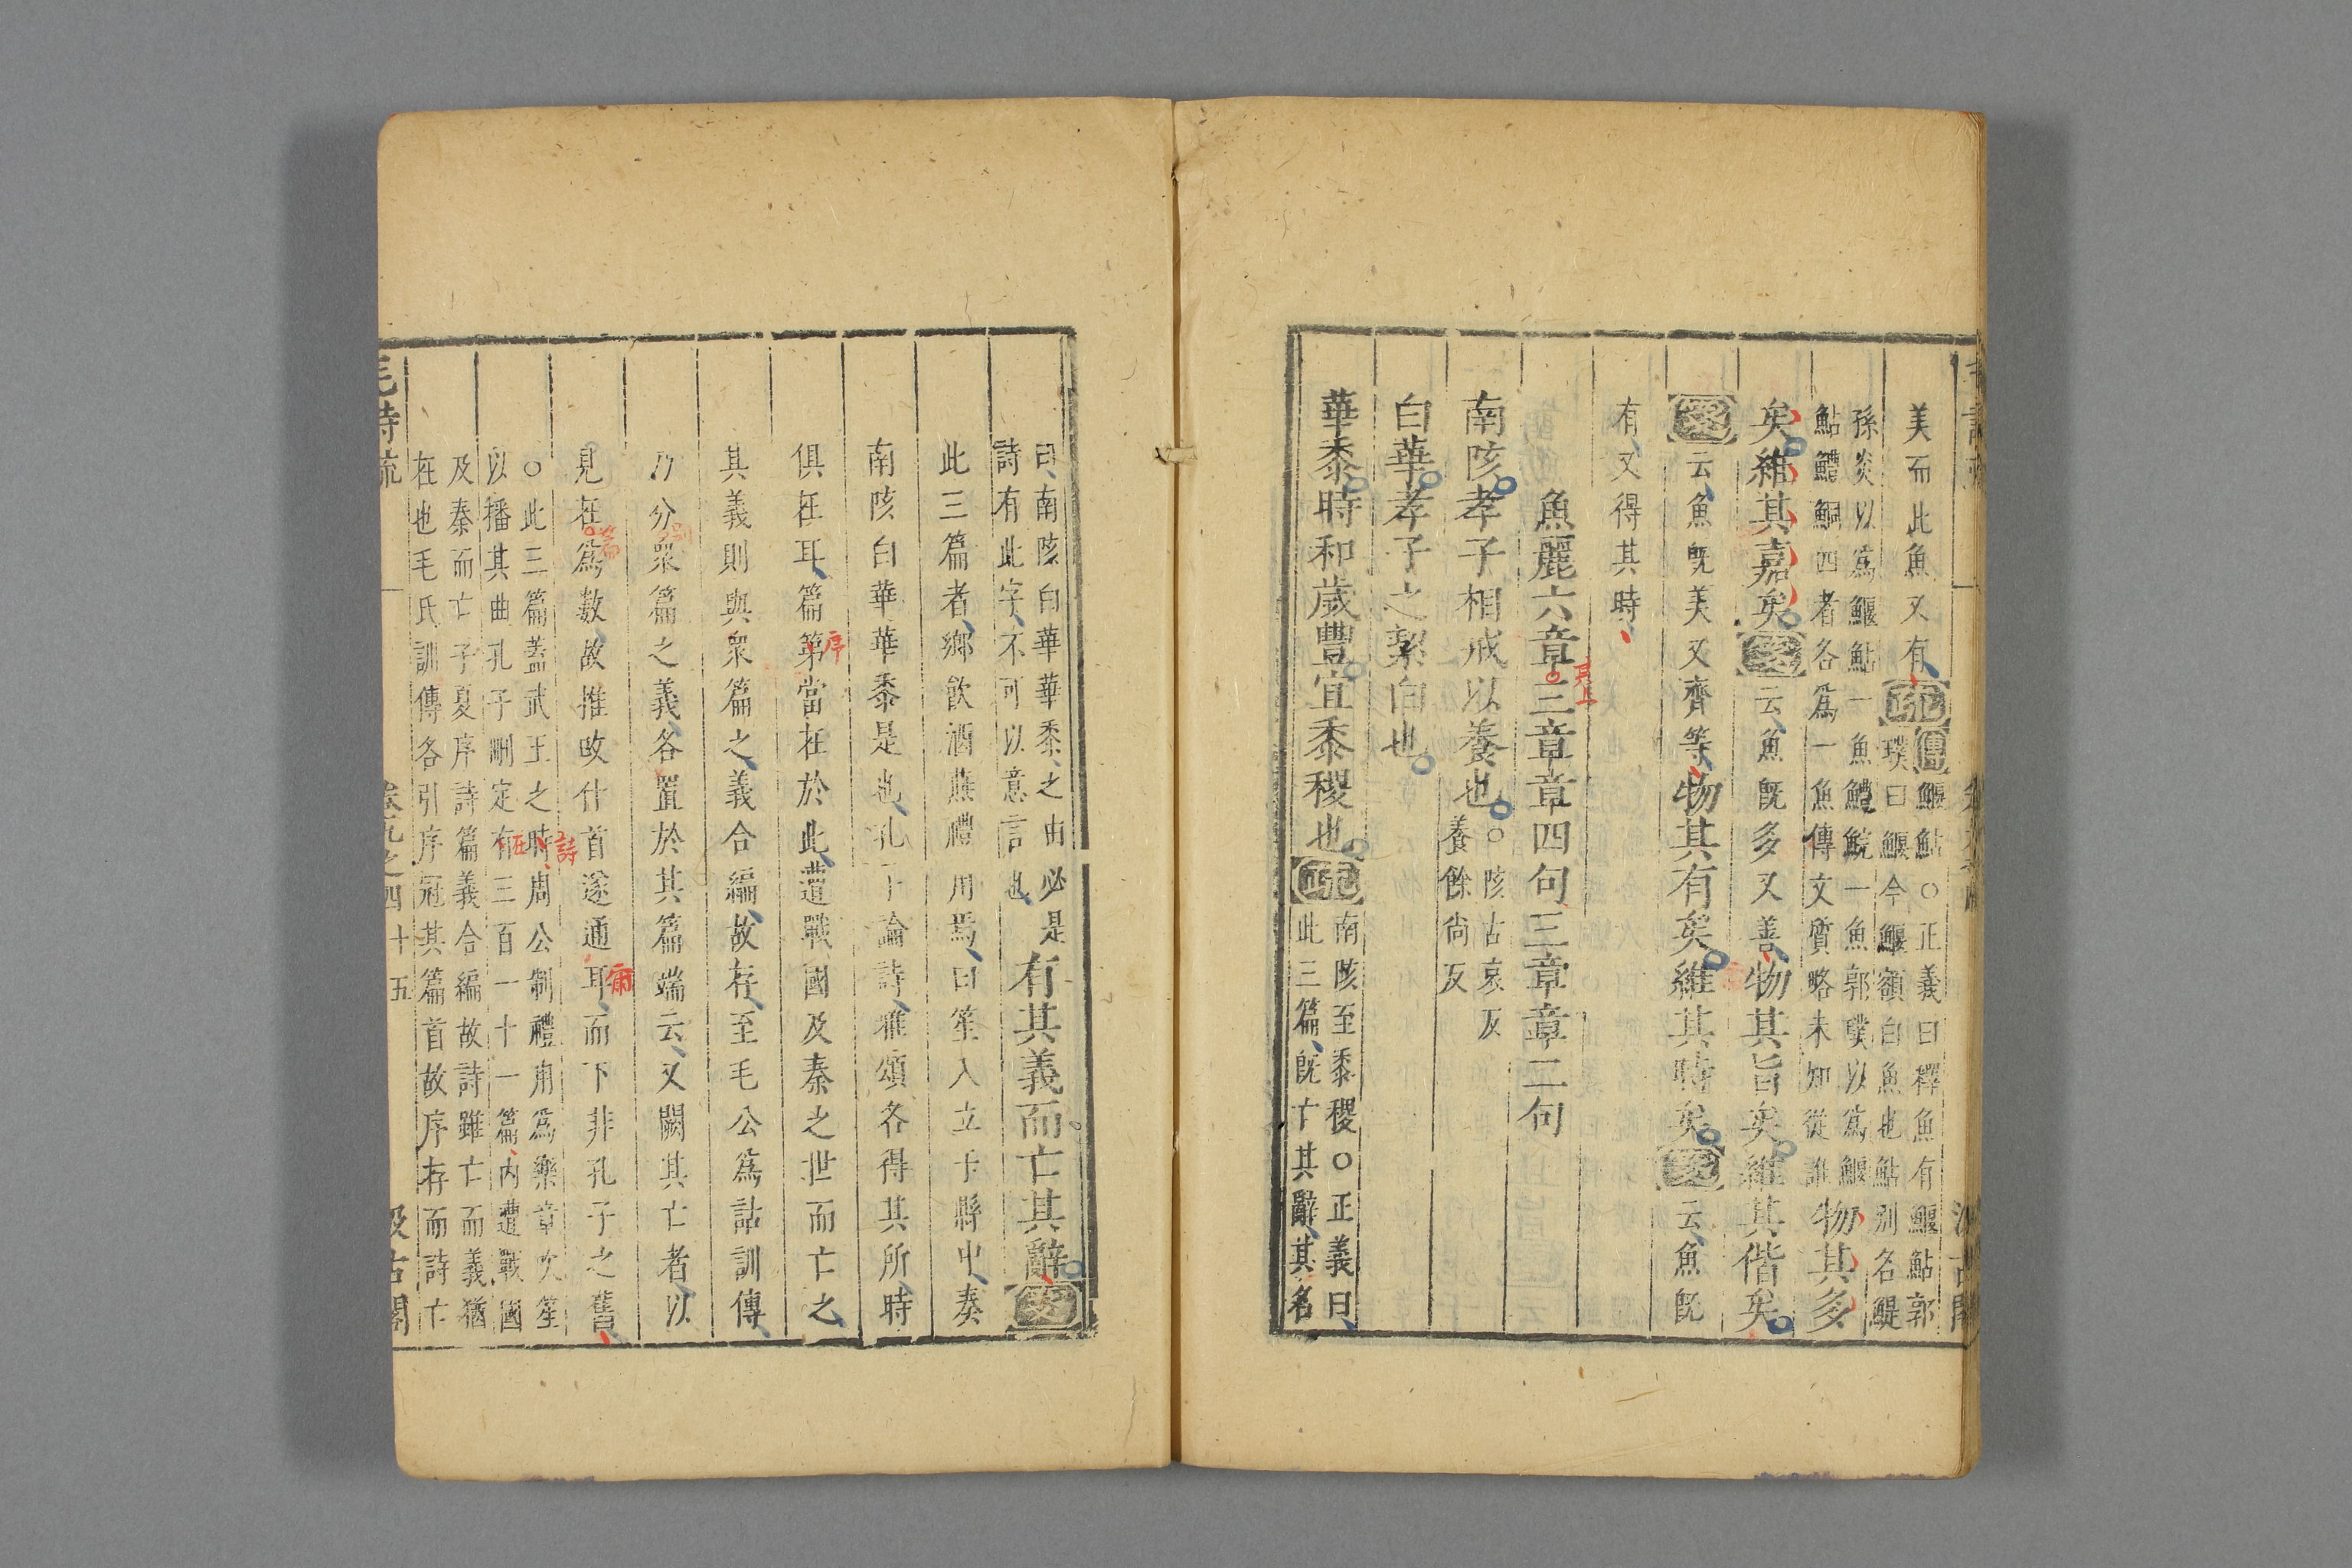 美而此魚又有疏傳鰋鮎○正義曰釋魚有鰋鮎郭
璞曰鰋今鰋額白魚也鮎别名鯷
孫炎以爲鰋鮎一魚鱧鯇一魚郭璞以爲鰋
鮎鱧鯇四者各爲一魚傳文質略未知從誰物其多
矣維其嘉矣箋云魚既多又善物其旨矣維其偕矣
箋云魚既美又齊等物其有矣維其時矣箋云魚既
有又得其時
魚麗六章三章章四句三章章二句
其上
南陔孝子相戒以養也○陔古哀反
養餘尚反
白華孝子之絜白也
華黍時和歲豐宜黍稷也疏南陔至黍稷○正義曰
此三篇既亡其辭其名
曰南陔白華華黍之由必是
詩有此字不可以意言也有其義而亡其辭箋
此三篇者鄉飲酒燕禮用焉曰笙入立于縣中奏
南陔白華華黍是也孔子論詩雅頌各得其所時
俱在耳篇第當在於此遭戰國及秦之世而亡之
序
其義則與衆篇之義合編故存至毛公爲詁訓傳
乃分衆篇之義各置於其篇端云又闕其亡者以
別
見在爲數故推改什首遂通耳而下非孔子之舊
篇
爾
○此三篇蓋武王之時周公制禮用爲樂章次笙
詩
以播其曲孔子刪定有三百一十一篇内遭戰國
在
及秦而亡子夏序詩篇義合編故詩雖亡而義猶
在也毛氏訓傳各引序冠其篇首故序存而詩亡
毛詩疏 卷九之四 十五 汲古閣